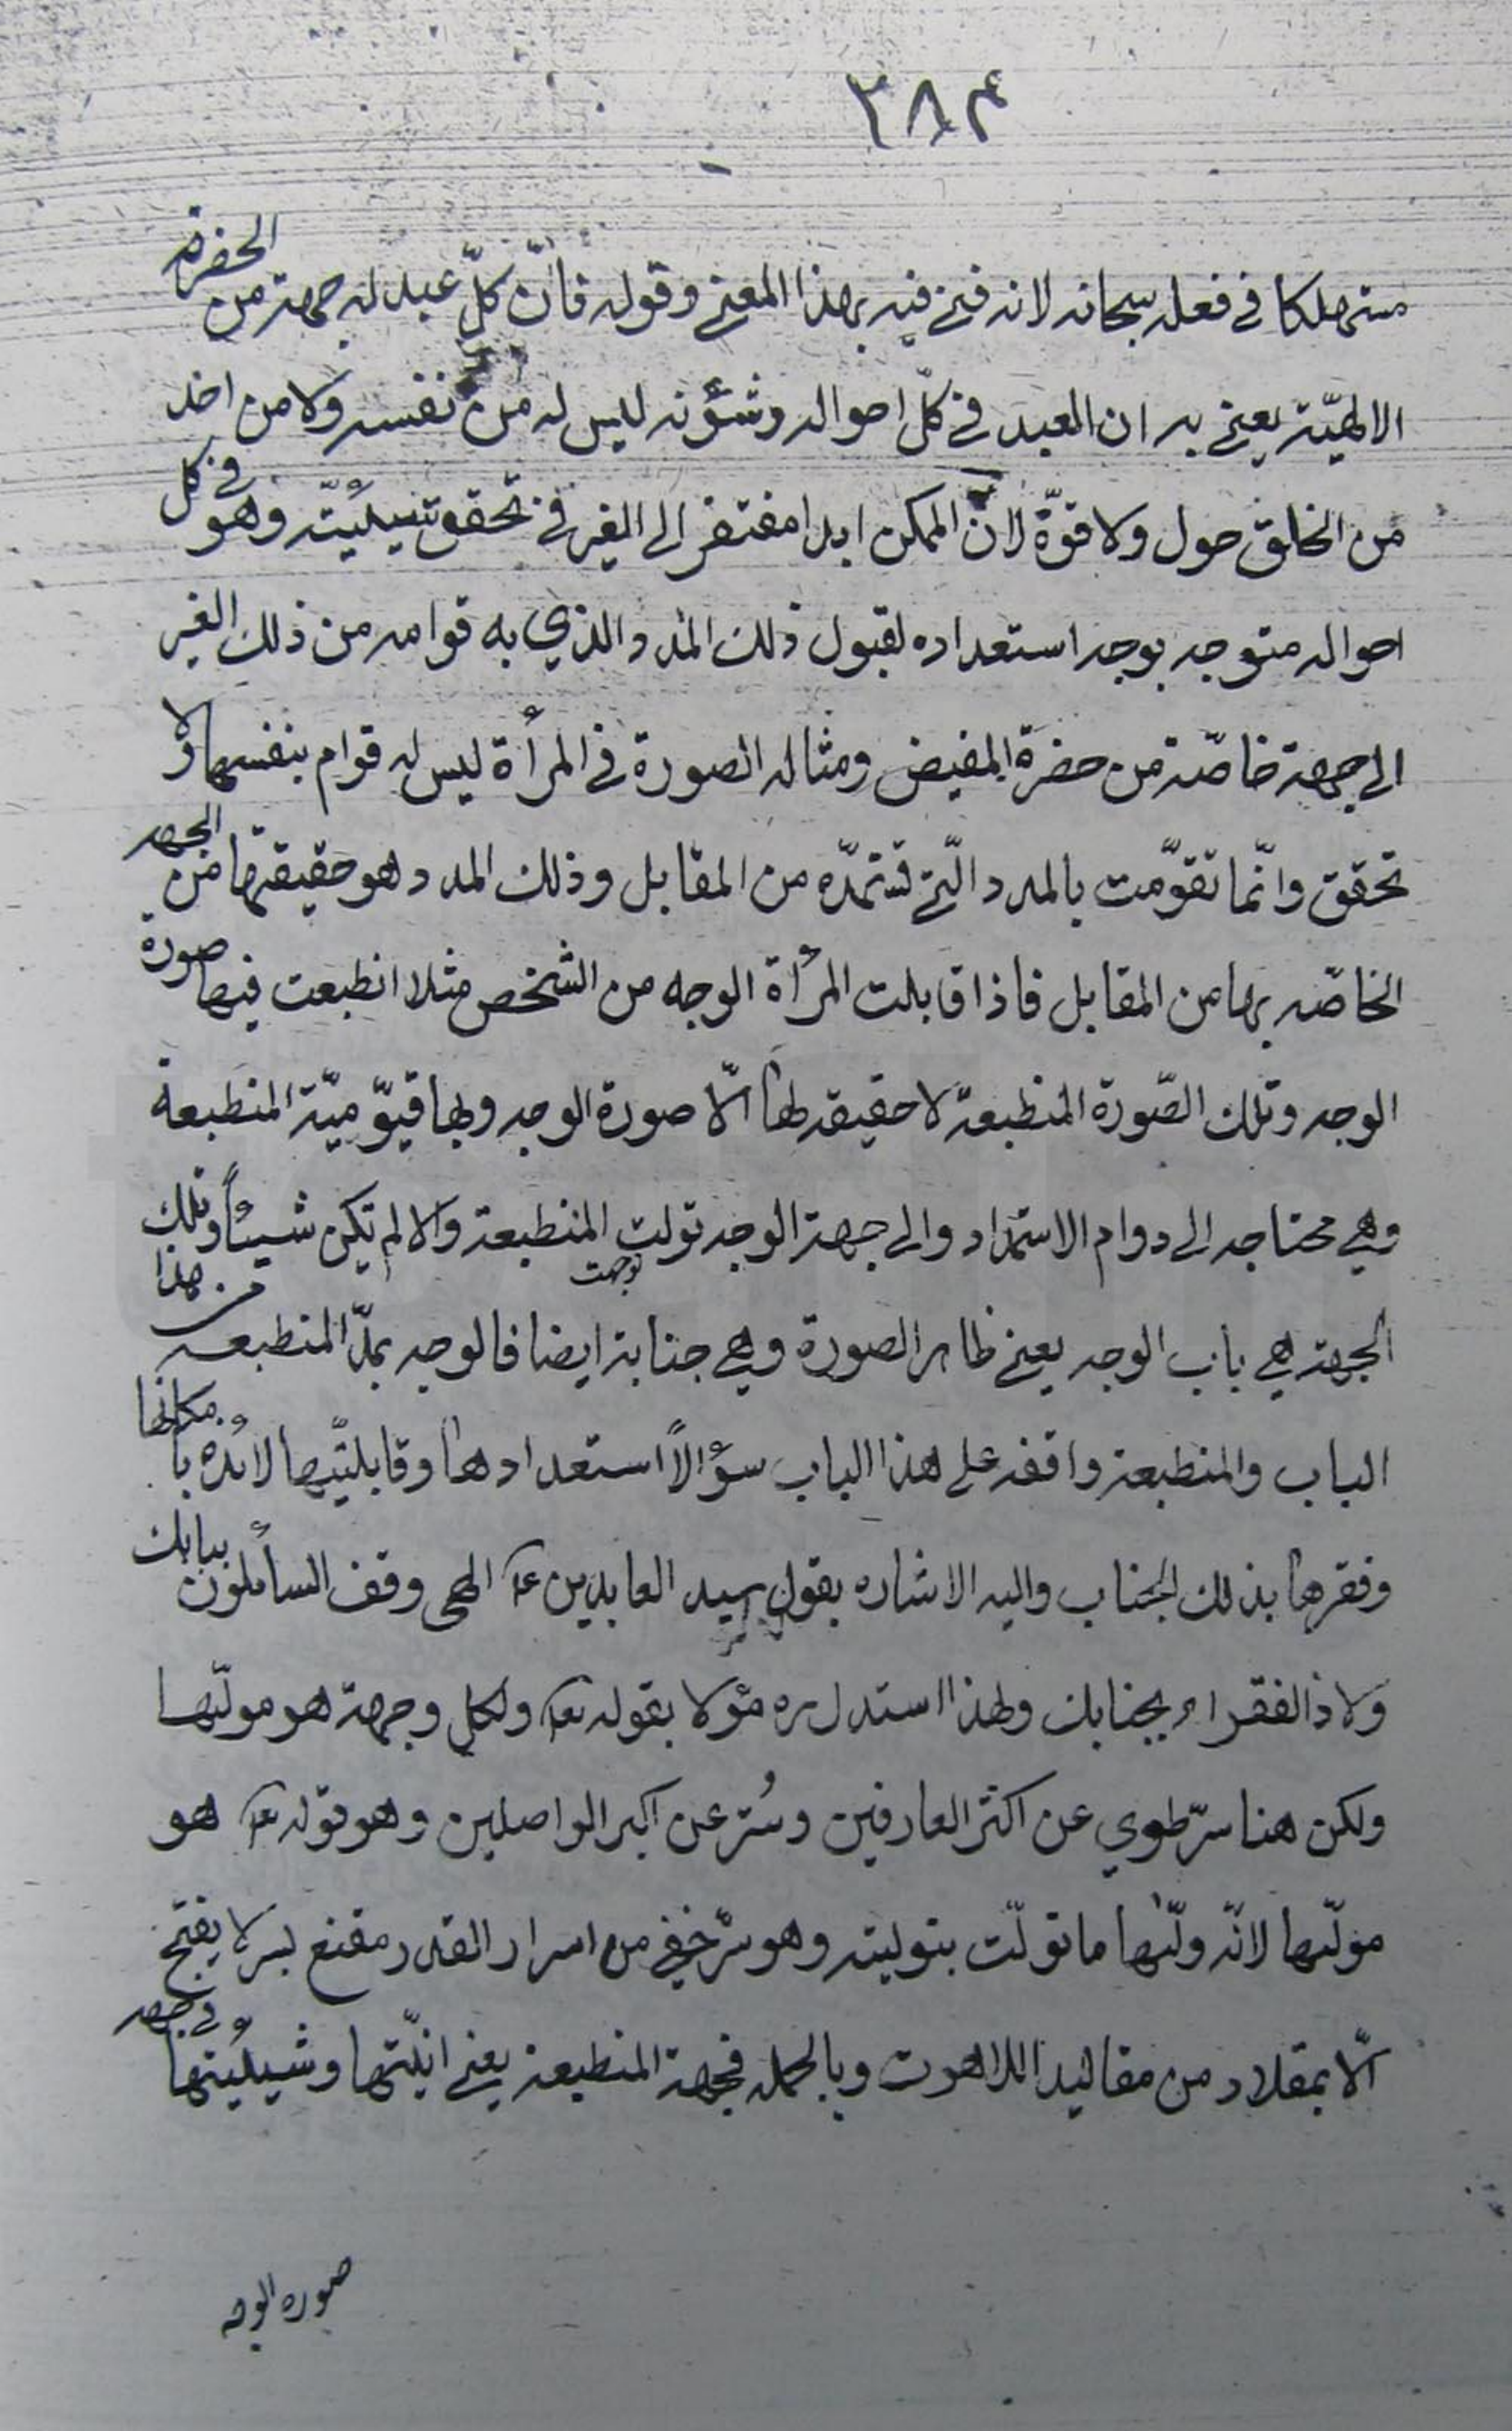 ٣٨۴
مستهلكا في فعله سبحانه لانه فنى فيه بهذا المعنى وقوله فانّ كلّ عبد له جهة من الحضرة
الالهيّة يعنى به ان العبد في كلّ احواله وشؤنه ليس له من نفسه ولا من احد
من الخلق حول ولا قوّة لانّ الممكن ابدا مفتقر الى الغير في تحقق شيئيّته وهو في كل
احواله متوجه بوجه استعداده لقبول ذلك المدد الذي به قوامه من ذلك الغير
الى جهة خاصّة من حضرة المفيض ومثاله الصورة في المرأة ليس له قوام بنفسها ولا
تحقق وانّما تقوّمت بالمدد الّتى تستمدّه من المقابل وذلك المدد هو حقيقتها من الجهه
الخاصّه بها من المقابل فاذا قابلت المرأة الوجه من الشخص مثلا انطبعت فيها صورة
الوجه وتلك الصّورة المنطبعة لا حقيقه لها الّا صورة الوجه وبها قيّوميّة المنطبعة
وهي محتاجه الى دوام الاستمداد والى جهة الوجه تولت المنطبعة والا لم تكن شيئاً وتلك
توجهت
الجهة هي باب الوجه يعنى ظاهر الصورة وهي جنابة ايضا فالوجه يمدّ المنطبعه من هذا
الباب والمنطبعة واقفه على هذا الباب سؤالاً استعدادها وقابليّتها لائذة بامكانها
وفقرها بذلك الجناب واليه الاشاره بقول سيد العابدين ع الهى وقف السائلون ببابك
ولاذ الفقراء بجنابك ولهذا استدل ره مؤلا بقوله تع ولكل وجهة هو مولّيها
ولكن هنا سرّ طوي عن اكثر العارفين وسُتر عن اكبر الواصلين وهو قوله تع هو
مولّيها لانّه ولّيها ما تولّت بتوليته وهو سرّ خفى من اسرار القدر مقنع بسر لا يفتح
الّا بمقلاد من مقاليد اللاهوت وبالجمله فجهة المنطبعة يعنى انيّتها وشيئيّتها في جهه
صوره الوجه